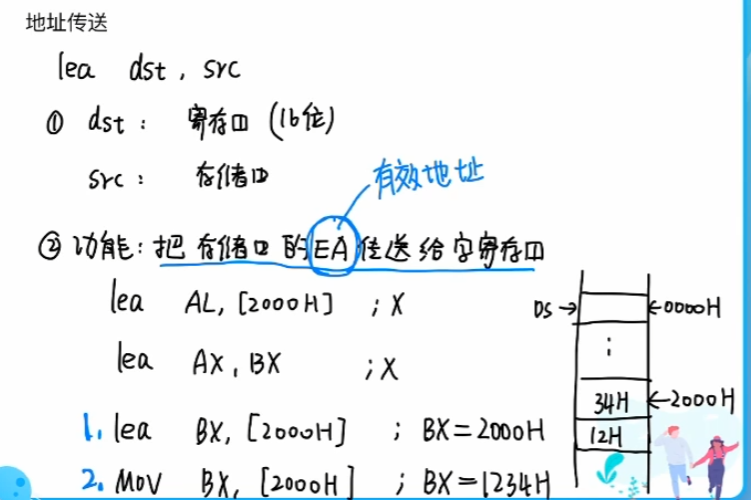 地址传送
lea dst, src
① dst: 寄存口 (16位)
src: 存储口
有效地址
② 功能: 把存储口的EA传送给字寄存口
lea AL, [2000H] ; X
lea AX, BX ; X
1. lea BX, [2000H] ; BX=2000H
2. MOV BX, [2000H] ; BX=1234H
DS → ← 0000H
⋮
34H ← 2000H
12H